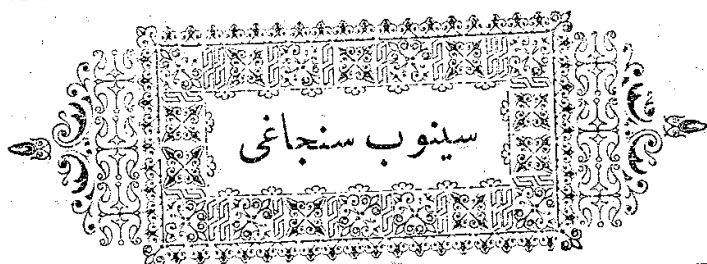 سينوب سنجاغى